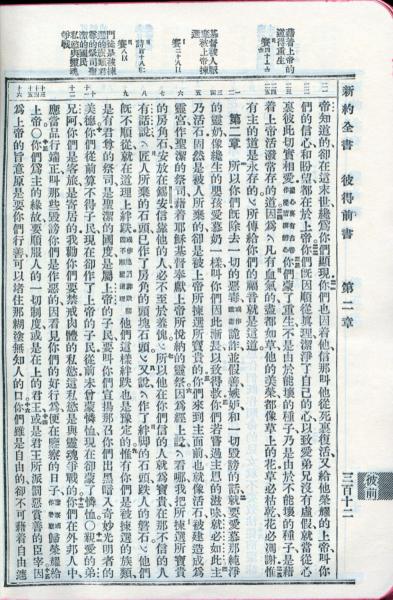 新約全書 彼得前書 第二章 三百十二
彼前
知道的卻在這末世纔爲你們顯現你們也因着他信那叫他從死裏復活又給他榮耀的上帝叫你
們的信心和盼望都在於上帝你們既因順從眞理潔淨了自己的心以致愛弟兄沒有虛假就當從心
裏彼此切實相愛你們蒙了重生不是由於能壞的種子乃是由於不能壞的種子是藉
着上帝活潑常存的道因爲凡有血氣的盡都如草他的美榮都像草上的花草必枯乾花必凋謝惟
有主的道是永存的所傳給你們的福音就是這道
第二章 所以你們既除去一切的惡毒詭詐並假善嫉妒和一切毀謗的話就要愛慕那純淨
的靈奶像纔生的嬰孩愛慕奶一樣叫你們因此漸長以致得救你們若嘗過主恩的滋味就必如此主
乃活石固然是被人所棄的卻是被上帝所揀選所寶貴的你們來到主面前也就像活石被建造成爲
靈宮作聖潔的祭司藉着耶穌基督奉獻上帝所悅納的靈祭因爲經上說看哪我把所揀選所寶貴
的房角石安放在錫安信靠他的人必不至於羞愧所以他在你們信的人就爲寶貴在那不信的人
有話說匠人所棄的石頭已作了房角的頭塊石頭又說作了絆脚的石頭跌人的磐石他們
既不順從就在道理上絆跌他們這樣絆跌也是豫定的惟有你們是被揀選的族類
是有君尊的祭司是聖潔的國度是屬上帝的子民要叫你們宣揚那召你們出黑暗入奇妙光明者的
美德你們從前算不得子民現在卻作了上帝的子民從前未曾蒙憐恤現在卻蒙了憐恤親愛的弟
兄阿你們是客旅是寄居的我勸你們要禁戒肉體的私慾這私慾是與靈魂爭戰的你們在外邦人中
應當品行端正叫那些毀謗你們是作惡的因看見你們的好行爲便在鑒察的日子歸榮耀給
上帝你們爲主的緣故要順服人的一切制度或是在上的君王或是君王所派罰惡賞善的臣宰因
爲上帝的旨意原是要你們行善可以堵住那糊塗無知人的口你們雖是自由的卻不可藉着自由遮